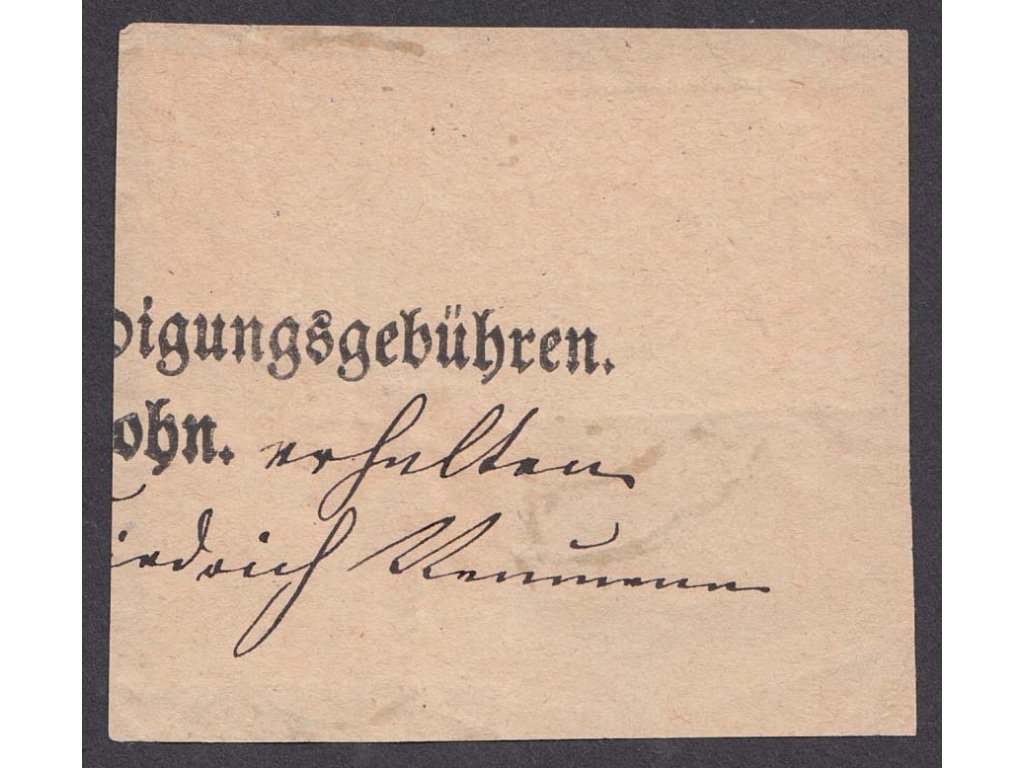 digungsgebühren.
ohn. erhalten
iedrich Neumann